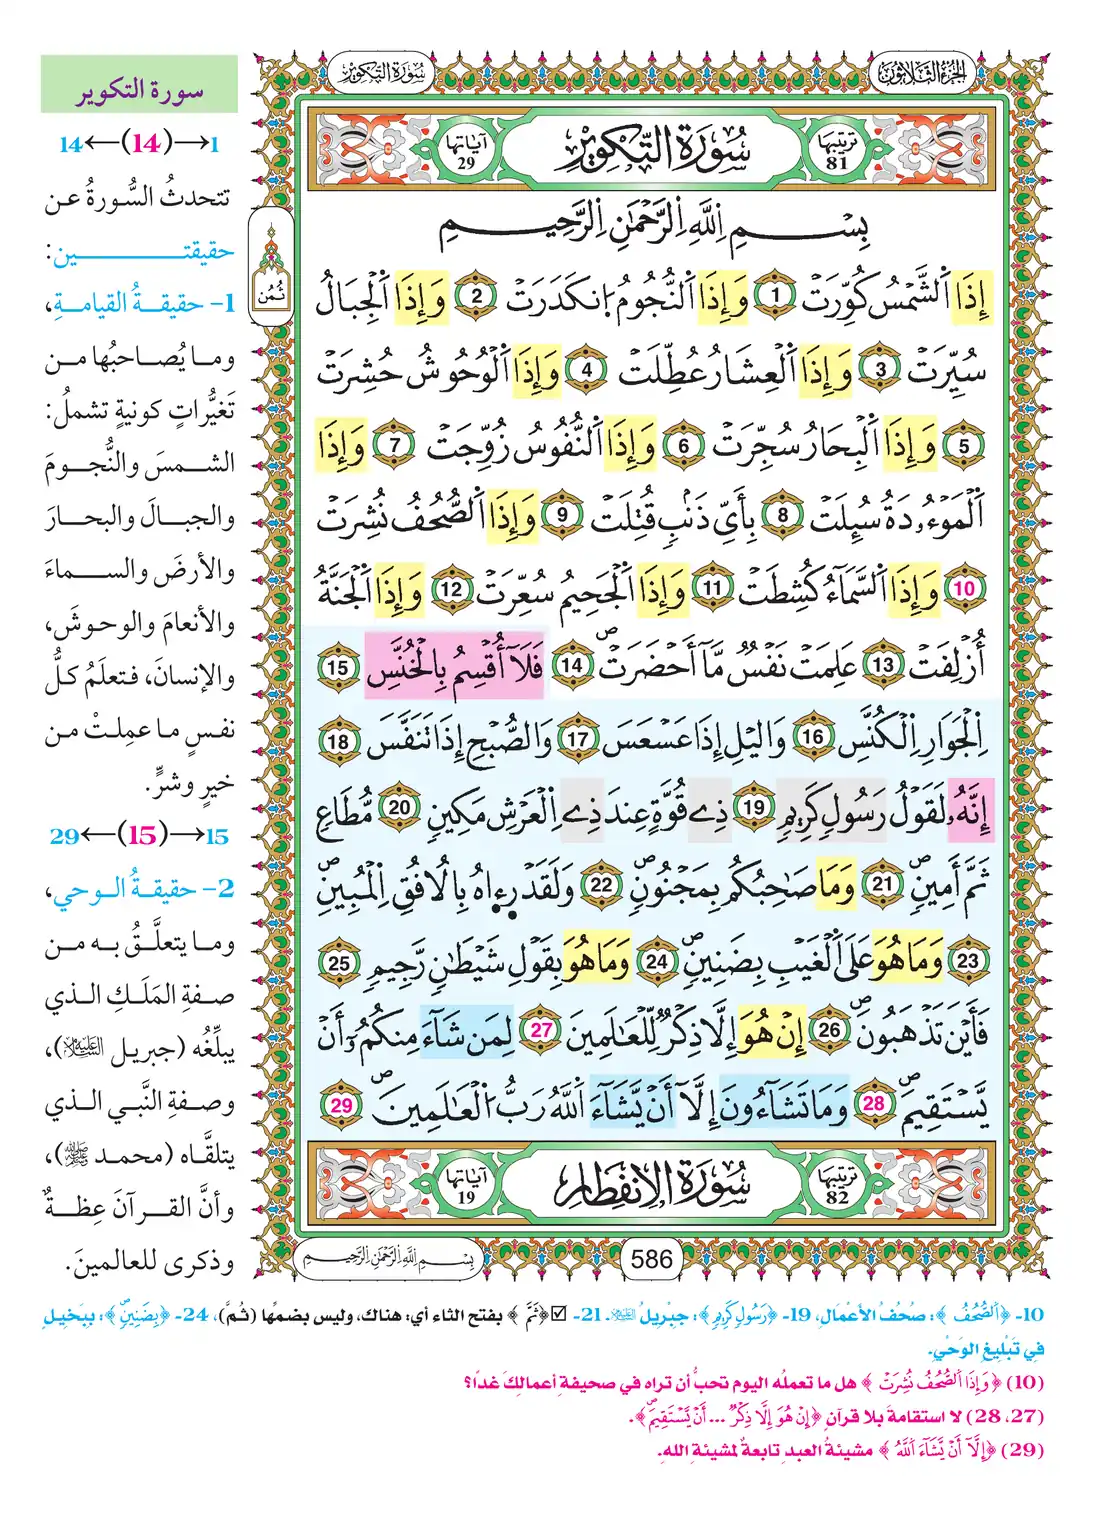 الجزء الثلاثون
سورة التكوير
سورة التكوير
ترتيبها 81
سُورَةُ التَّكْوِيرِ
آياتها 29
بِسْمِ اِ۬للَّهِ اِ۬لرَّحْمَٰنِ اِ۬لرَّحِيمِ
ثمن
إِذَا اَ۬لشَّمْسُ كُوِّرَتْ 1 وَإِذَا اَ۬لنُّجُومُ اُ۪نكَدَرَتْ 2 وَإِذَا اَ۬لْجِبَالُ
سُيِّرَتْ 3 وَإِذَا اَ۬لْعِشَارُ عُطِّلَتْ 4 وَإِذَا اَ۬لْوُحُوشُ حُشِرَتْ
5 وَإِذَا اَ۬لْبِحَارُ سُجِّرَتْ 6 وَإِذَا اَ۬لنُّفُوسُ زُوِّجَتْ 7 وَإِذَا
اَ۬لْمَوْءُۥدَةُ سُئِلَتْ 8 بِأَيِّ ذَنۢبٖ قُتِلَتْ 9 وَإِذَا اَ۬لصُّحُفُ نُشِرَتْ
10 وَإِذَا اَ۬لسَّمَآءُ كُشِطَتْ 11 وَإِذَا اَ۬لْجَحِيمُ سُعِّرَتْ 12 وَإِذَا اَ۬لْجَنَّةُ
أُزْلِفَتْ 13 عَلِمَتْ نَفْسٞ مَّآ أَحْضَرَتْ 14 فَلَآ أُقْسِمُ بِالْخُنَّسِ 15
اِ۬لْجَوَارِ اِ۬لْكُنَّسِ 16 وَاليْلِ إِذَا عَسْعَسَ 17 وَالصُّبْحِ إِذَا تَنَفَّسَ 18
إِنَّهُۥ لَقَوْلُ رَسُولٖ كَرِيمٖ 19 ذِے قُوَّةٍ عِندَ ذِے اِ۬لْعَرْشِ مَكِينٖ 20 مُّطَاعٖ
ثَمَّ أَمِينٖ 21 وَمَا صَاحِبُكُم بِمَجْنُونٖ 22 وَلَقَدْ رِء۪اهُ بِالُافُقِ اِ۬لْمُبِينِ
23 وَمَا هُوَ عَلَى اَ۬لْغَيْبِ بِضَنِينٖ 24 وَمَا هُوَ بِقَوْلِ شَيْطَٰنٖ رَّجِيمٖ 25
فَأَيْنَ تَذْهَبُونَ 26 إِنْ هُوَ إِلَّا ذِكْرٞ لِّلْعَٰلَمِينَ 27 لِمَن شَآءَ مِنكُمُۥٓ أَنْ
يَّسْتَقِيمَ 28 وَمَا تَشَآءُونَ إِلَّآ أَنْ يَّشَآءَ اَ۬للَّهُ رَبُّ اُ۬لْعَٰلَمِينَ 29
ترتيبها 82
سُورَةُ الاِنفِطَارِ
آياتها 19
بِسْمِ اِ۬للَّهِ اِ۬لرَّحْمَٰنِ اِ۬لرَّحِيمِ
586
سورة التكوير
1→(14)←14
تتحدثُ السُّورةُ عن
حقيقتين:
1- حقيقةُ القيامةِ،
وما يُصاحبُها من
تَغيُّراتٍ كونيةٍ تشملُ:
الشمسَ والنُّجومَ
والجبالَ والبحارَ
والأرضَ والسماءَ
والأنعامَ والوحوشَ،
والإنسانَ، فتعلَمُ كلُّ
نفسٍ ما عمِلتْ من
خيرٍ وشرٍّ.
15→(15)←29
2- حقيقةُ الوحي،
وما يتعلَّقُ به من
صفةِ المَلَكِ الذي
يبلِّغُه (جبريل عليه السلام)،
وصفةِ النَّبي الذي
يتلقَّاه (محمد ﷺ)،
وأنَّ القرآنَ عِظةٌ
وذكرى للعالمينَ.
10- ﴿اَ۬لصُّحُفُ﴾: صُحُفُ الأَعْمَالِ، 19- ﴿رَسُولٖ كَرِيمٖ﴾: جِبْرِيلُ عليه السلام. 21- ☑ ﴿ثَمَّ﴾ بفتح الثاء أي: هناك، وليس بضمِّها (ثُمَّ)، 24- ﴿بِضَنِينٖ﴾: بِبَخِيلٍ
فِي تَبْلِيغِ الوَحْيِ.
(10) ﴿وَإِذَا اَ۬لصُّحُفُ نُشِرَتْ﴾ هل ما تعملُه اليوم تحبُّ أن تراه في صحيفةِ أعمالِكَ غدًا؟
(27، 28) لا استقامةَ بلا قرآنٍ ﴿إِنْ هُوَ إِلَّا ذِكْرٞ ... أَنْ يَّسْتَقِيمَ﴾.
(29) ﴿إِلَّآ أَنْ يَّشَآءَ اَ۬للَّهُ﴾ مشيئةُ العبدِ تابعةٌ لمشيئةِ اللهِ.